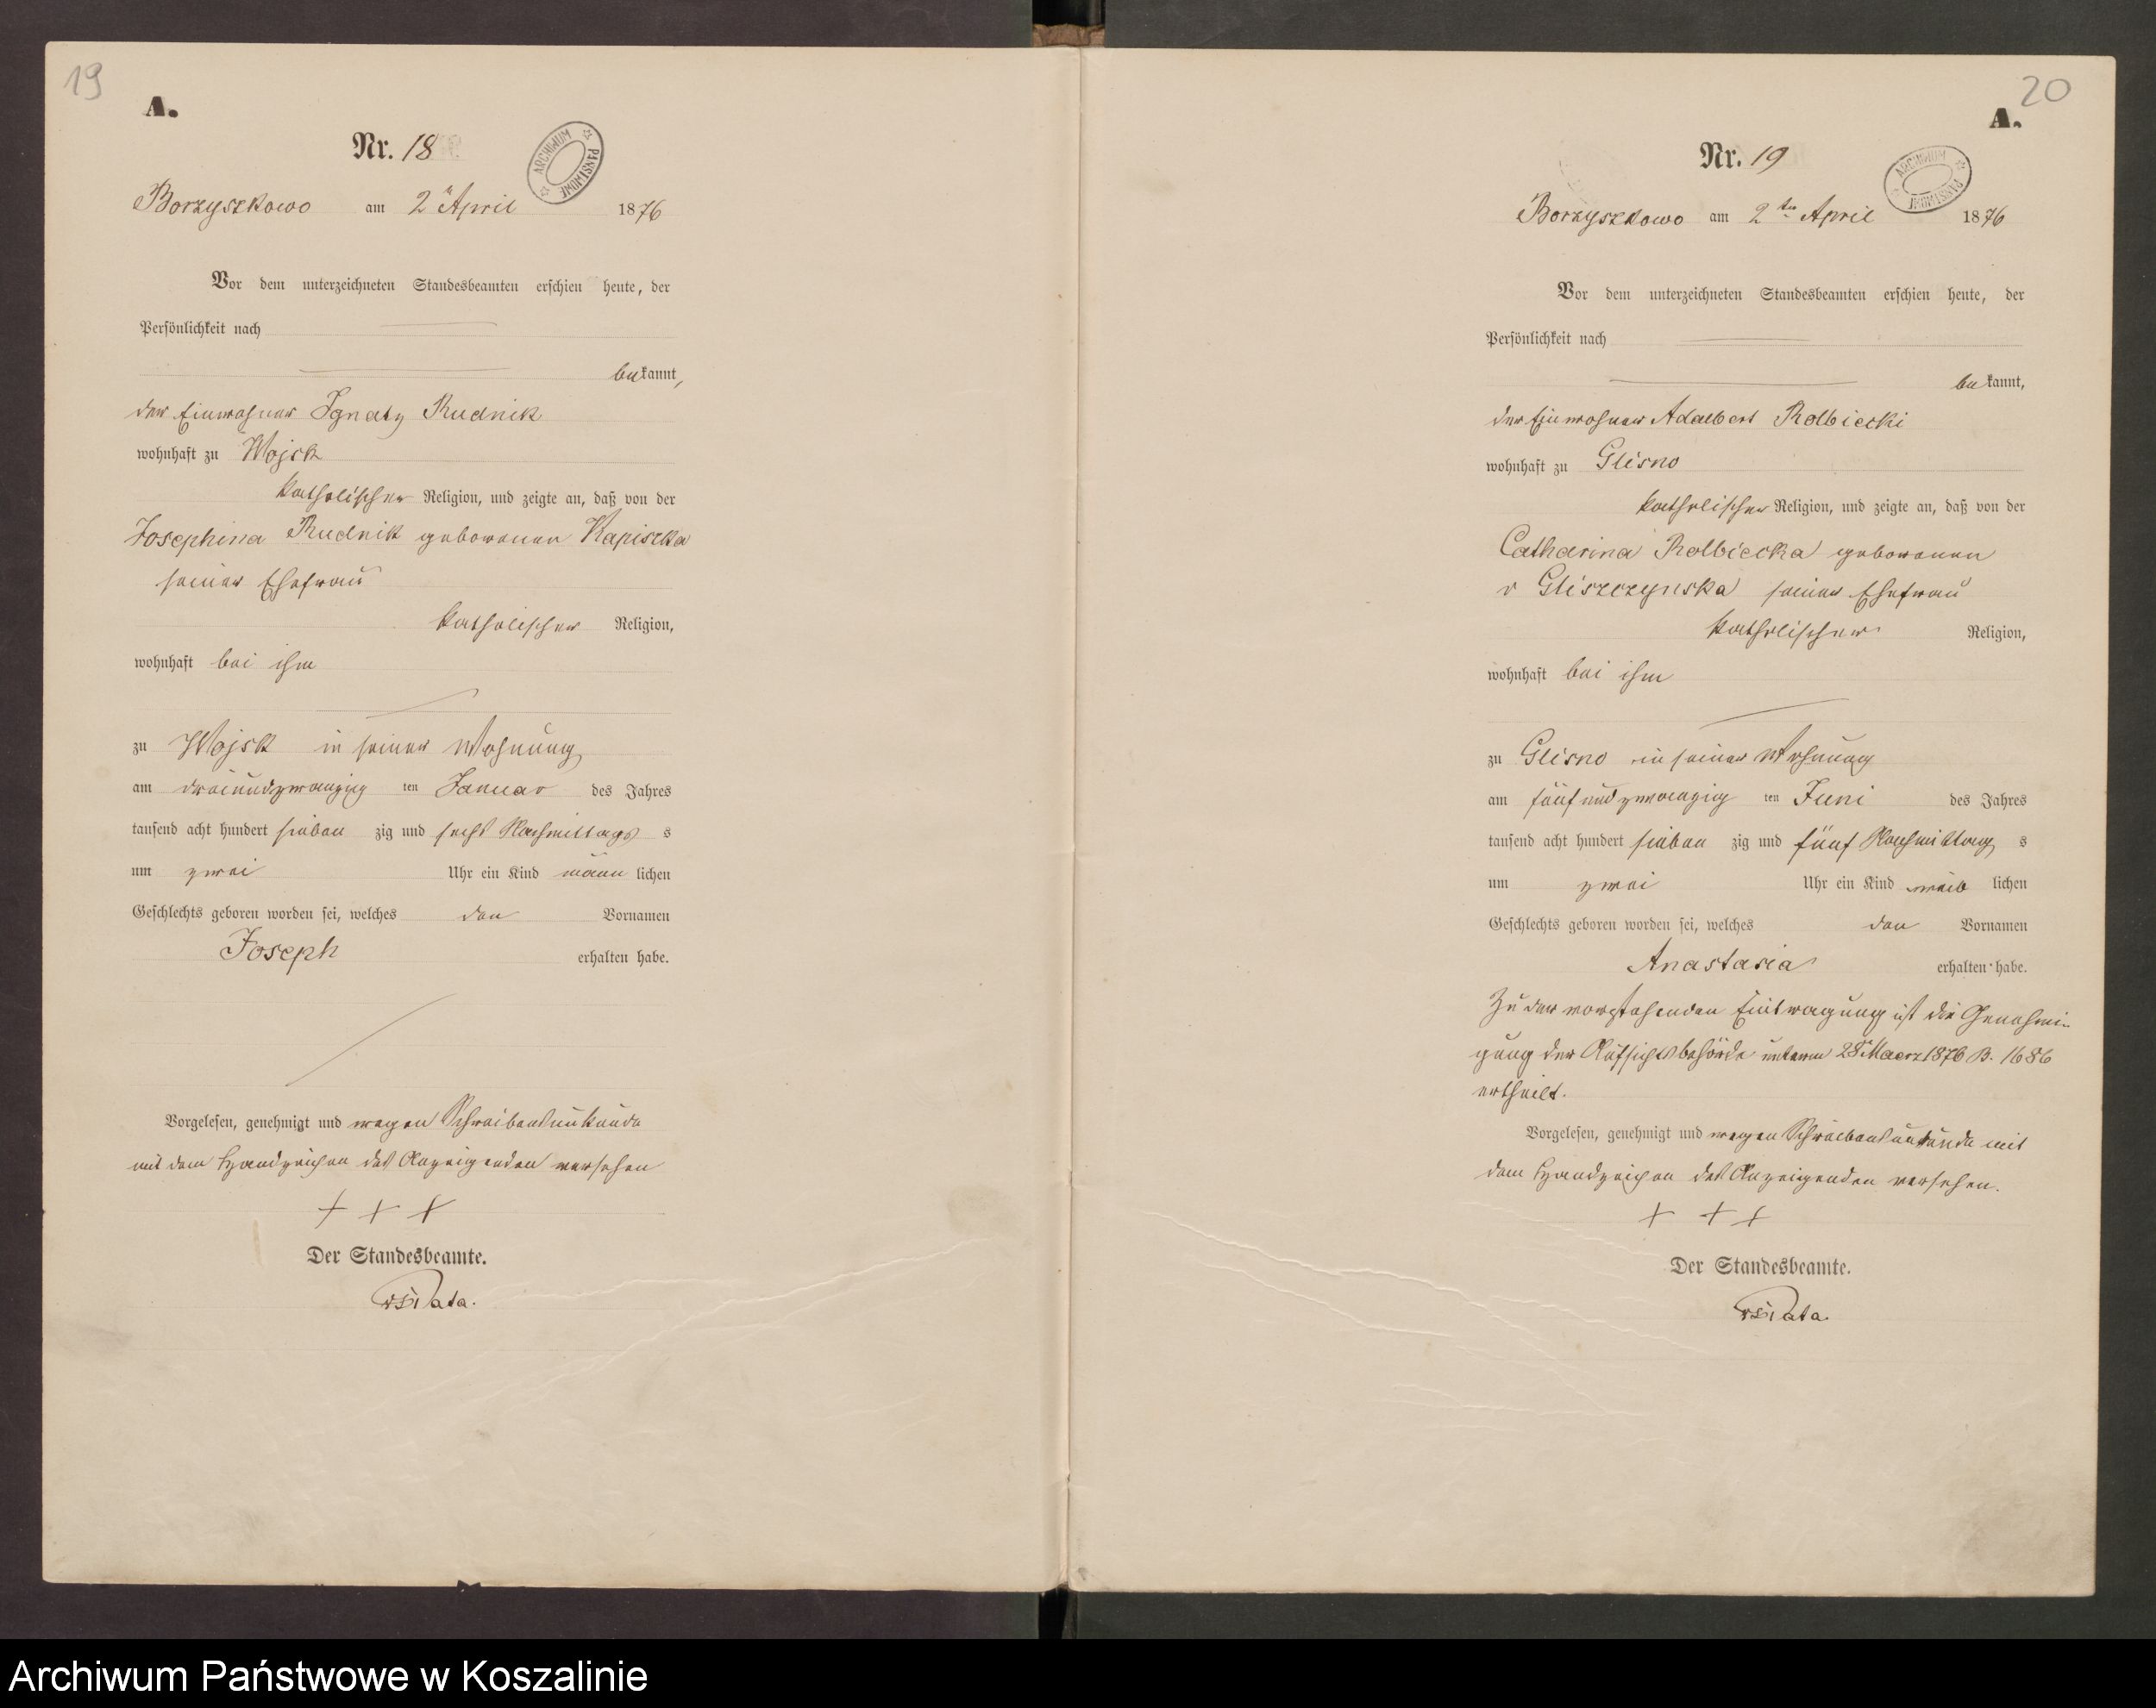 19
A.
Nr. 18
ARCHIWUM PAŃSTWOWE
Borzyszkowo am 2 April 1876
Vor dem unterzeichneten Standesbeamten erschien heute, der
Persönlichkeit nach
bekannt,
der Einwohner Ignatz Rudnik
wohnhaft zu Wojsk
katholischer Religion, und zeigte an, daß von der
Josephina Rudnik geborenen Kapiszka
seiner Ehefrau
katholischer Religion,
wohnhaft bei ihm
zu Wojsk in seiner Wohnung
am dreiundzwanzig ten Januar des Jahres
tausend acht hundert sieben zig und sechs Nachmittags s
um zwei Uhr ein Kind männ lichen
Geschlechts geboren worden sei, welches den Vornamen
Joseph erhalten habe.
Vorgelesen, genehmigt und wegen Schreibensunkunde
mit dem Handzeichen des Anzeigenden versehen
+ + +
Der Standesbeamte.
20
A.
Nr. 19
ARCHIWUM PAŃSTWOWE
Borzyszkowo am 2ten April 1876
Vor dem unterzeichneten Standesbeamten erschien heute, der
Persönlichkeit nach
bekannt,
der Einwohner Adalbert Rolbiecki
wohnhaft zu Glisno
katholischer Religion, und zeigte an, daß von der
Catharina Rolbiecka geborenen
v Gliszczynska seiner Ehefrau
katholischer Religion,
wohnhaft bei ihm
zu Glisno in seiner Wohnung
am fünfundzwanzig ten Juni des Jahres
tausend acht hundert sieben zig und fünf Nachmittag s
um zwei Uhr ein Kind weib lichen
Geschlechts geboren worden sei, welches den Vornamen
Anastasia erhalten habe.
Zu der vorstehenden Eintragung ist die Genehmi-
gung der Aufsichtsbehörde unterm 28 Maerz 1876 B. 1686
ertheilt.
Vorgelesen, genehmigt und wegen Schreibensunkunde mit
dem Handzeichen des Anzeigenden versehen.
+ + +
Der Standesbeamte.
Archiwum Państwowe w Koszalinie